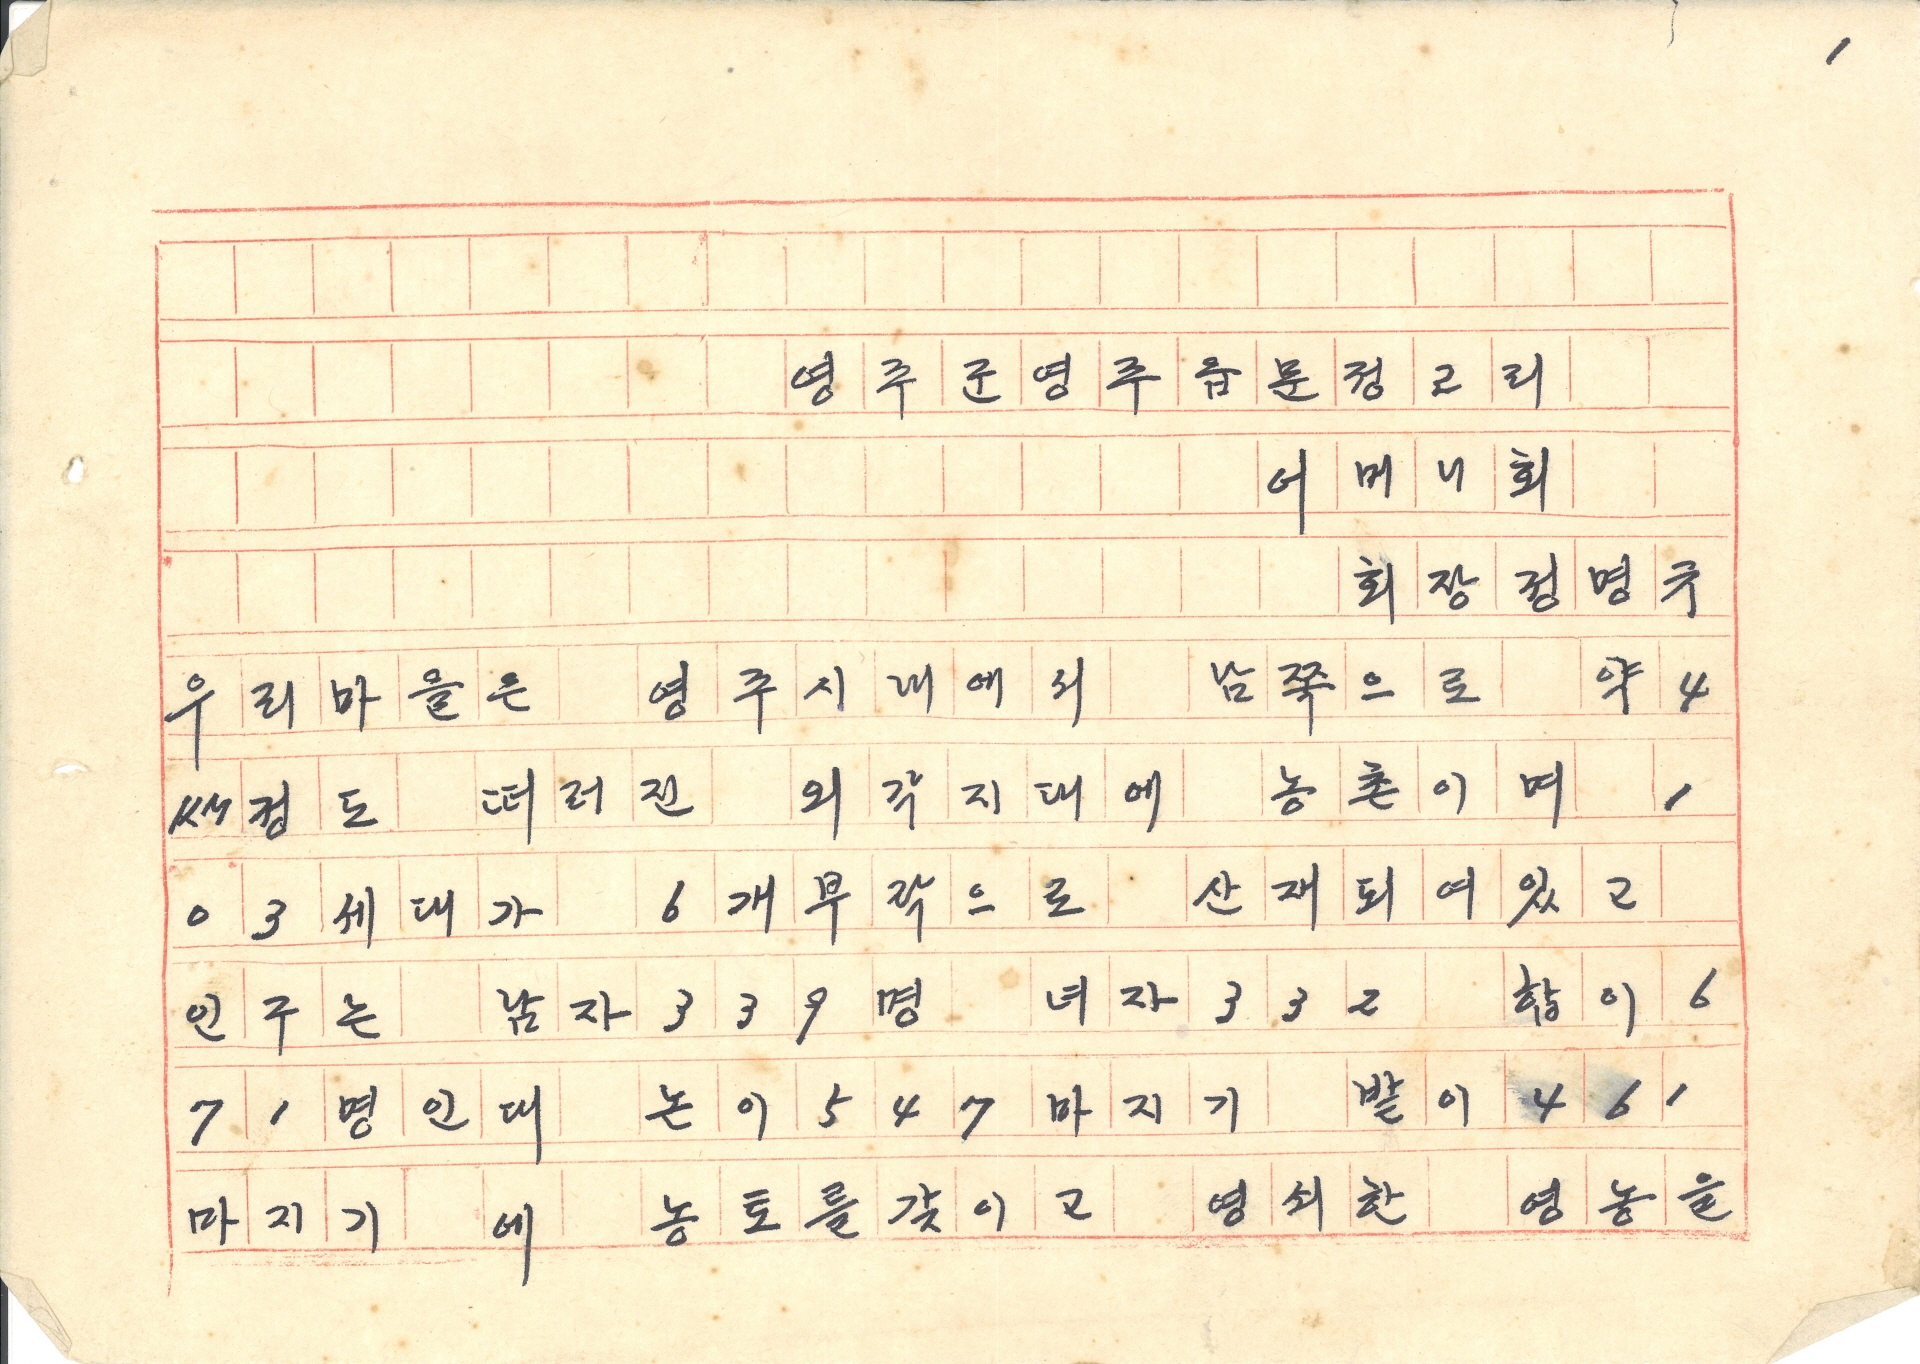 1
영주군영주읍문정고리
어메니회
회장정명구
우리마을은 영주시내에서 남쪽으로 약4
㎞정도 떠러진 외각지대에 농촌이며 1
03세대가 6개부락으로 산재되여있고
인구는 남자339명 녀자332 합이6
71명인대 논이547마지기 밭이461
마지기 에 농토를갖이고 영쇠한 영농을